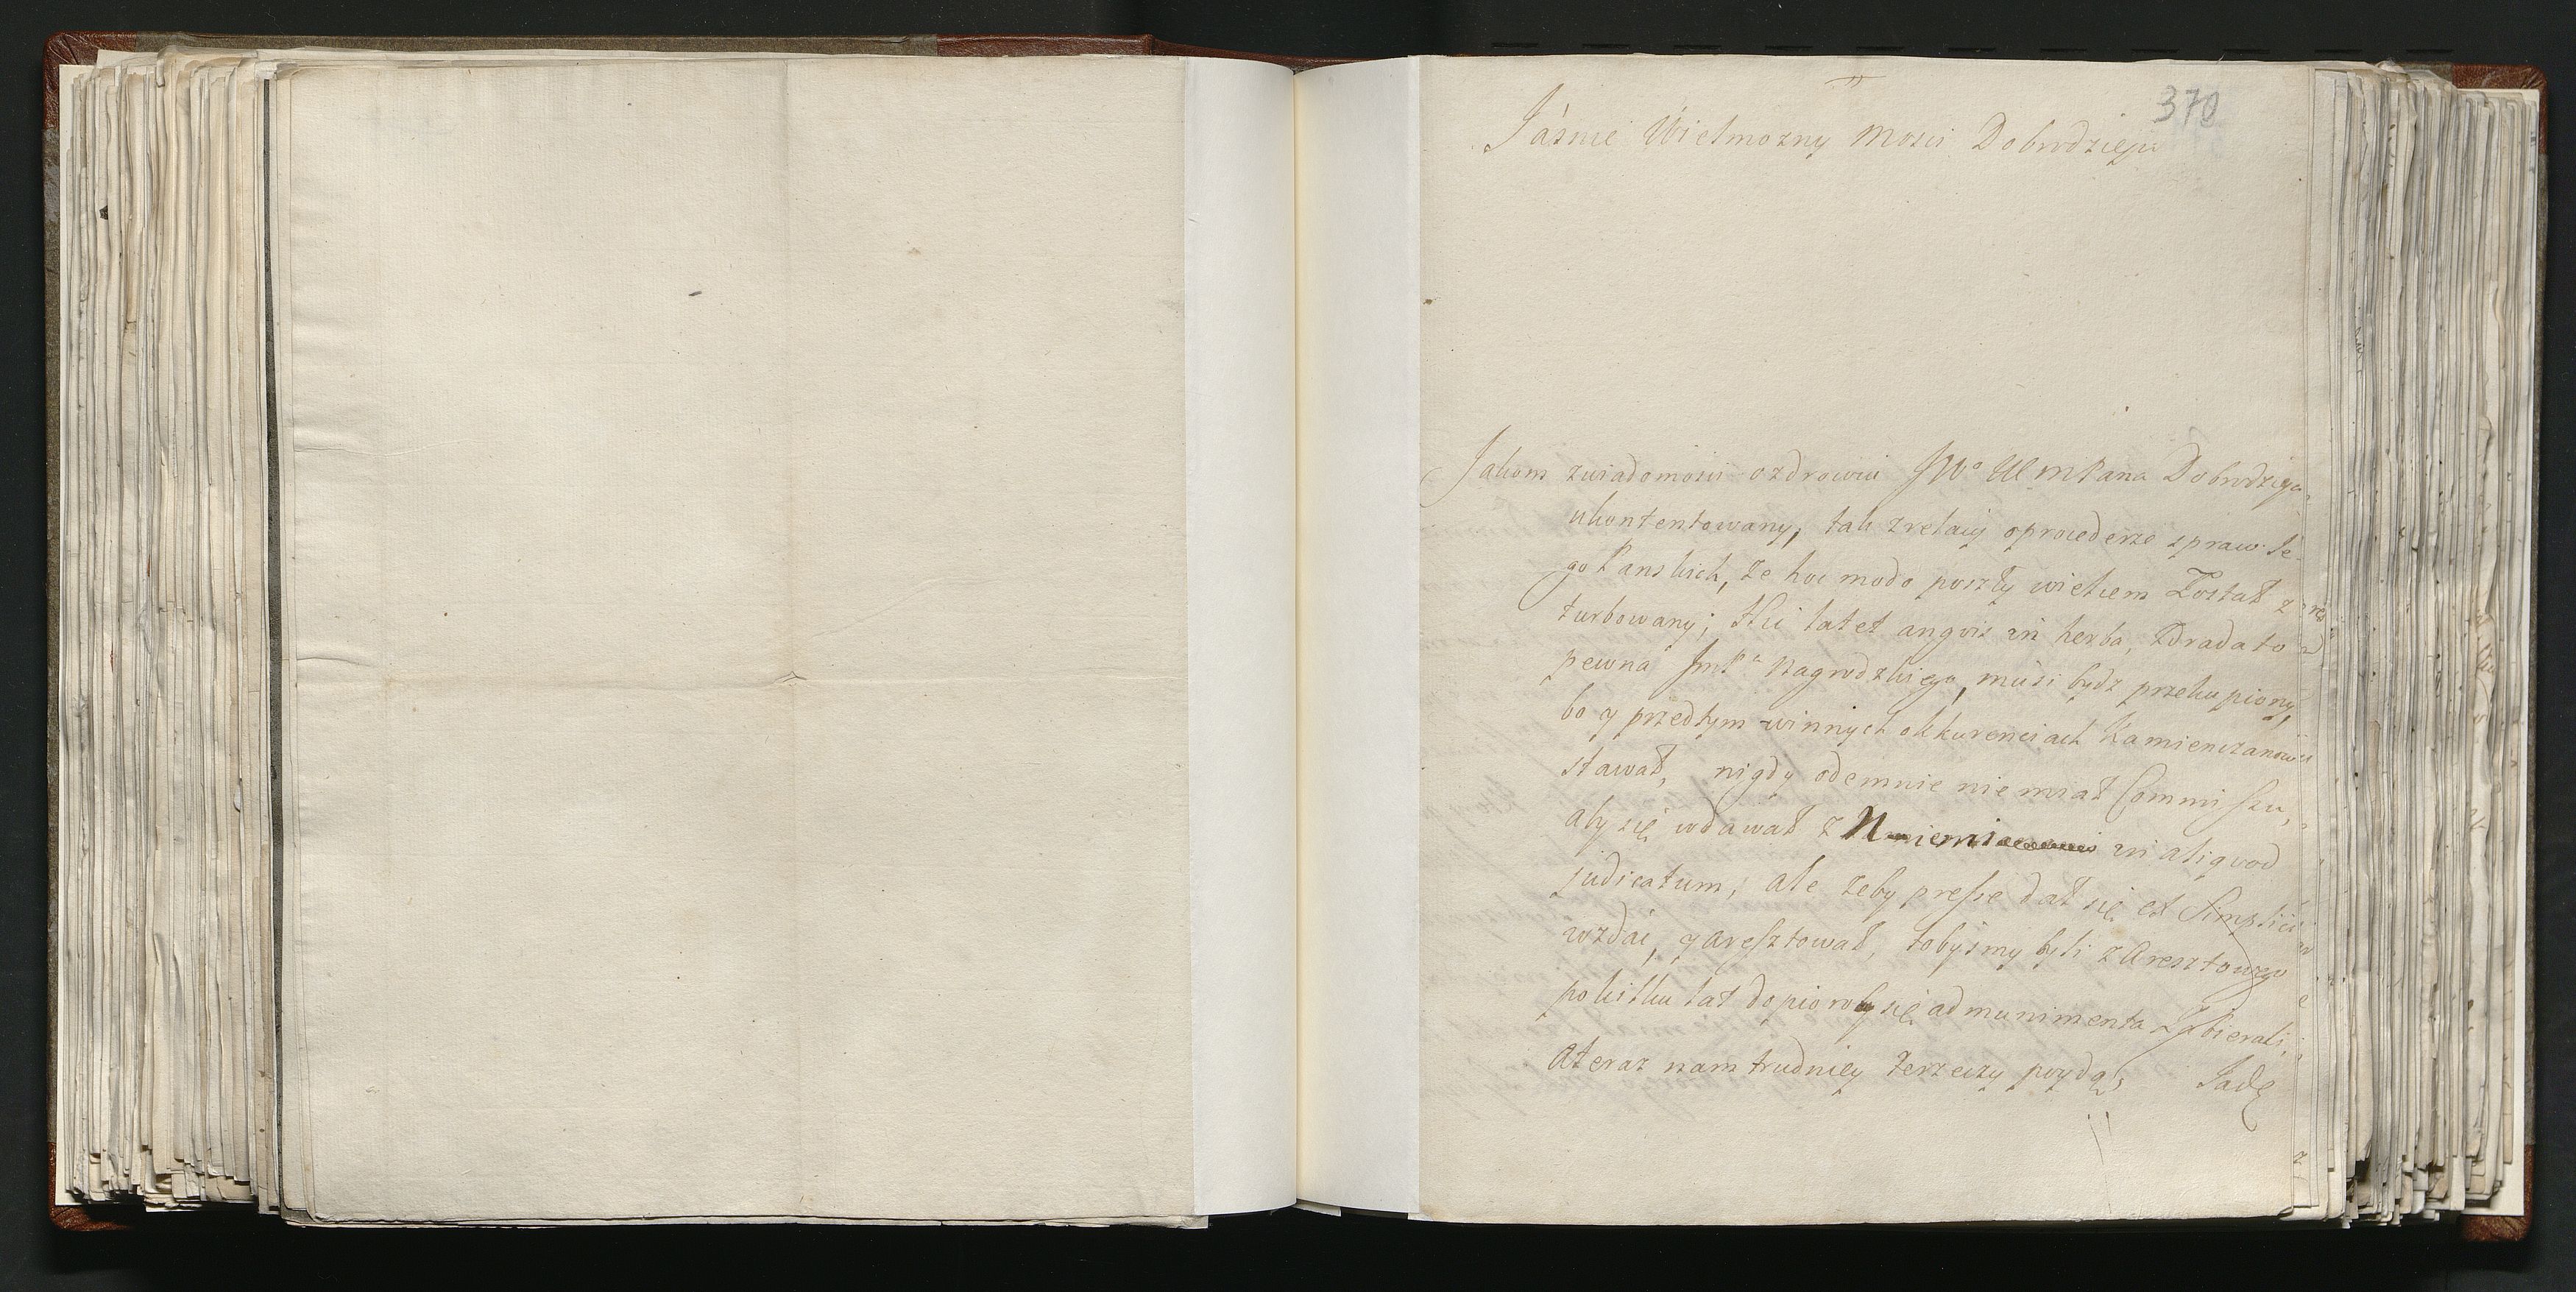 370
Jásnie Wielmozny Mosci Dobrodzieju
Jakom zwiadomosci ozdrowiu JWo WMPana Dobrodzieja
ukontentowany, tak zrelacij oprocederze spraw Je-
go Panskich, ze hoc modo poszły wielcem Został z
turbowany; Hic latet angvis in herba, Zdrada to
pewna JmPa Nagrodzkiego, musi bydz przekupiony,
bo y przedtym winnych okkurenciach Kamienczanowi
stawał, nigdy odemnie nie miał Commissu,
aby się wdawał z in aliqvod
judicatum, ale zeby presse dał się ex Simplici
wzdac, y aresztował, tobysmy byli zAresztowego
pokilku lat dopioroby się ad munimenta Zabierali,
Ateraz nam trudniey terzeczy poydą, Jadę